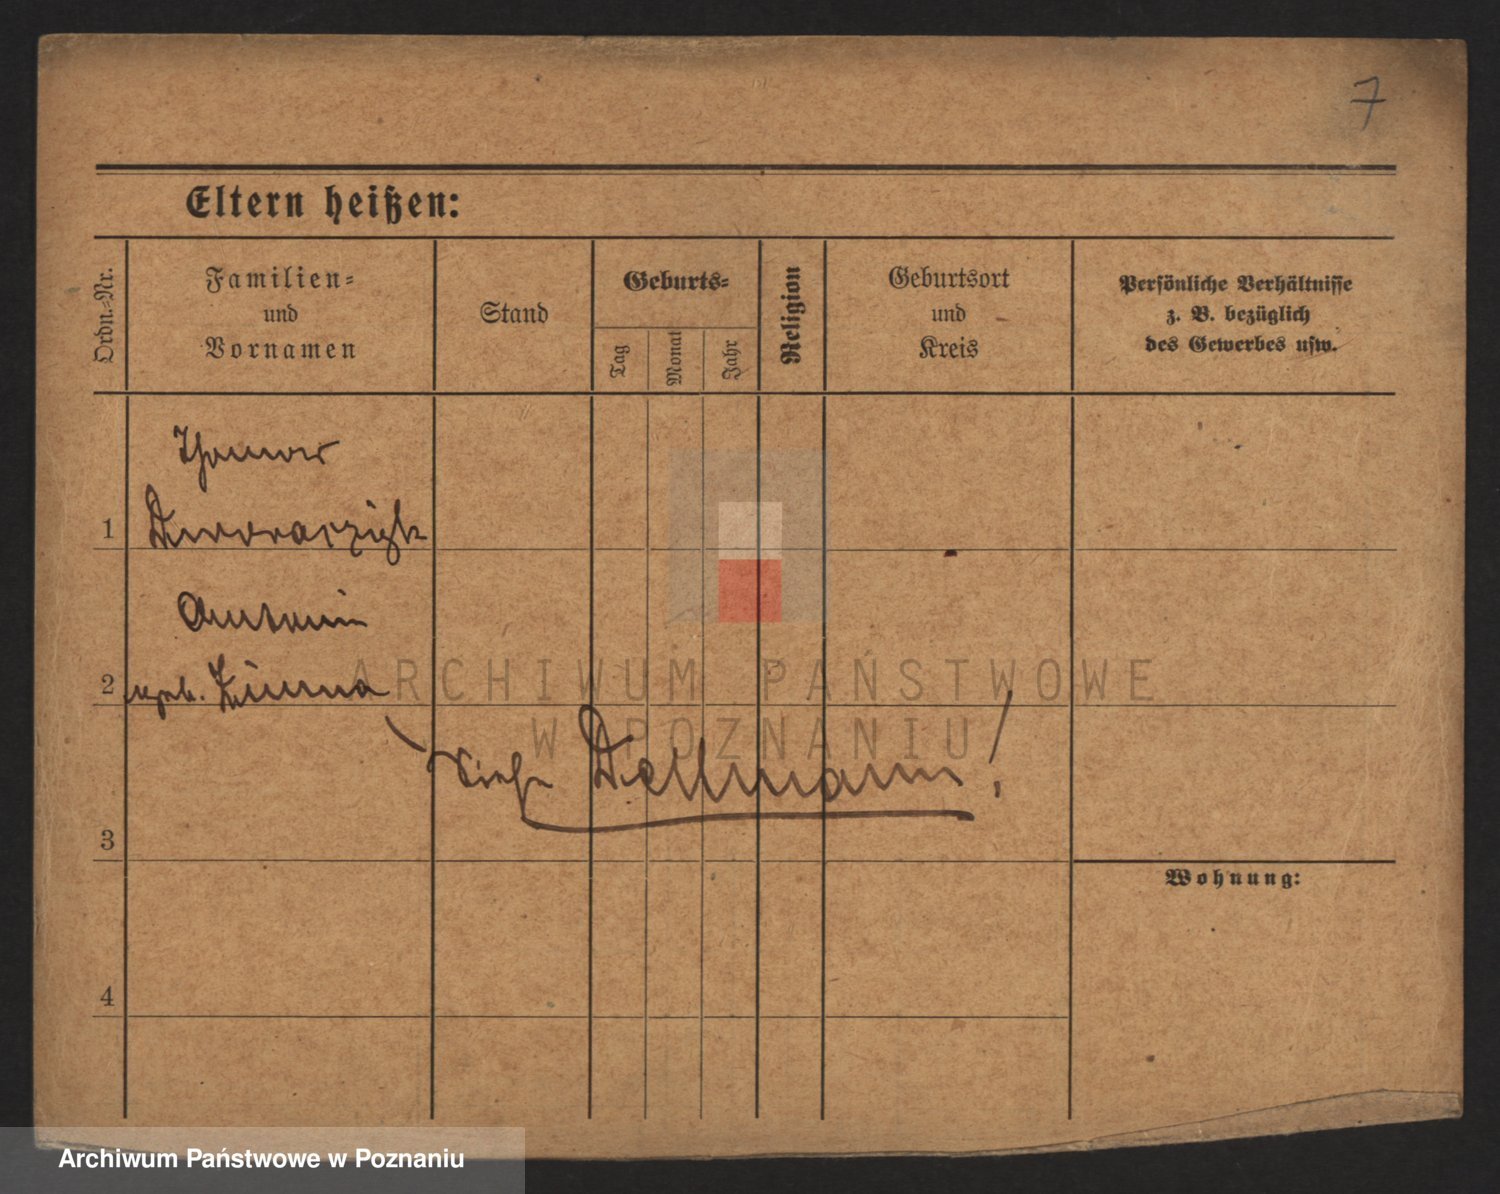 7
Eltern heißen:
Ordn.=Nr.
Familien=
und
Vornamen
Stand
Geburts=
Tag
Monat
Jahr
Religion
Geburtsort
und
Kreis
Persönliche Verhältnisse
z. B. bezüglich
des Gewerbes usw.
Thomas
1
Antonin
2 geb.
siehe Dellmann!
3
Wohnung:
4
ARCHIWUM PAŃSTWOWE
W POZNANIU
Archiwum Państwowe w Poznaniu